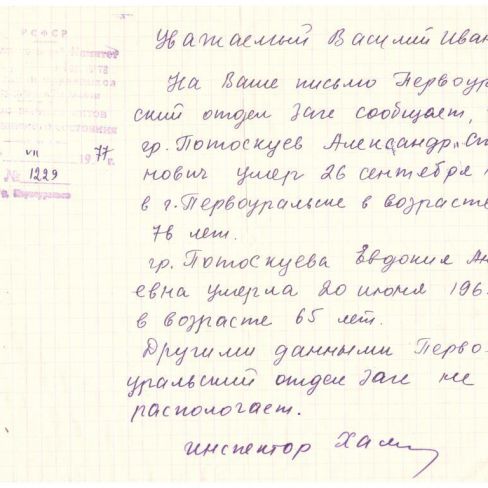 РСФСР
Уважаемый Василий Иван
На Ваше письмо Первоура
ский отдел Загс сообщает,
гр. Потоскуев Александр Ст
нович умер 26 сентября
в г. Первоуральске в возрасте
76 лет.
гр. Потоскуева Евдокия Ан
евна умерла 20 июня 196
в возрасте 65 лет.
Другими данными Перво
уральский отдел Загс не
распологает.
инспектор
VII 1977 г.
№ 1229